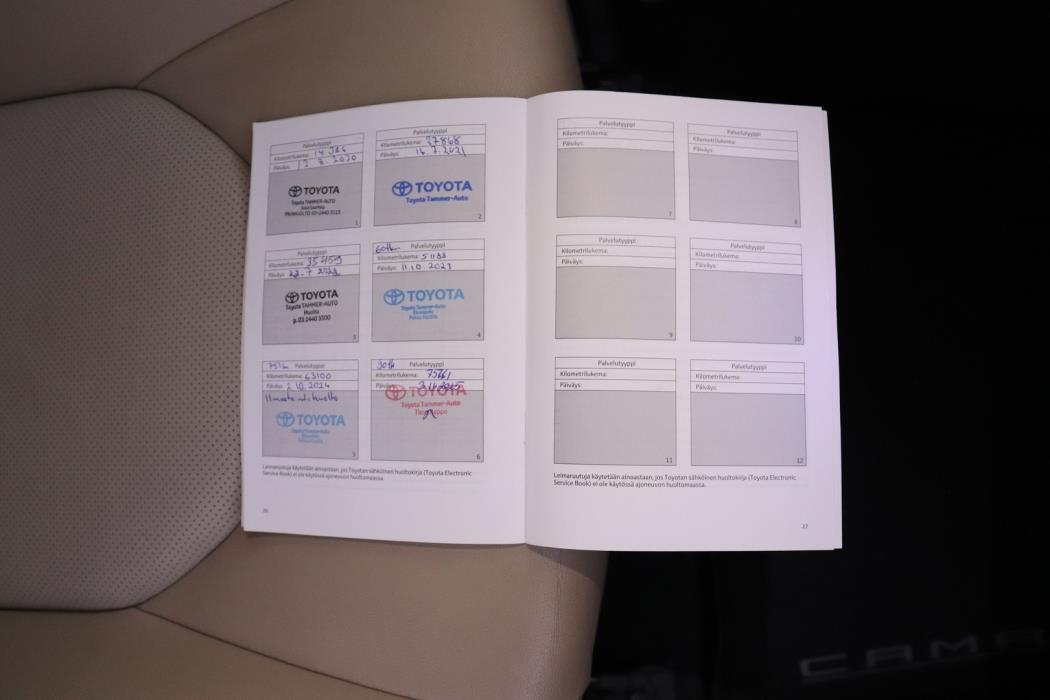 Palvelutyyppi
Kilometrilukema: 14 386
Päiväys: 12.8.2020
TOYOTA
Toyota TAMMER-AUTO
1
Palvelutyyppi
Kilometrilukema: 27868
Päiväys: 16.7.2021
TOYOTA
Toyota Tammer-Auto
2
Palvelutyyppi
Kilometrilukema: 35459
Päiväys:
TOYOTA
Toyota TAMMER-AUTO
Huolto
p. 03 2440 3500
3
60tk Palvelutyyppi
Kilometrilukema: 51183
Päiväys: 11.10.2023
TOYOTA
Toyota Tammer-Auto
4
75tk Palvelutyyppi
Kilometrilukema: 63100
Päiväys: 2.10.2024
TOYOTA
Toyota Tammer-Auto
5
90tk Palvelutyyppi
Kilometrilukema: 75661
Päiväys:
TOYOTA
Toyota Tammer-Auto
6
Leimaruutuja käytetään ainoastaan, jos Toyotan sähköinen huoltokirja (Toyota Electronic
Service Book) ei ole käytössä ajoneuvon huoltomaassa.
26
Palvelutyyppi
Kilometrilukema:
Päiväys:
7
Palvelutyyppi
Kilometrilukema:
Päiväys:
8
Palvelutyyppi
Kilometrilukema:
Päiväys:
9
Palvelutyyppi
Kilometrilukema:
Päiväys:
10
Palvelutyyppi
Kilometrilukema:
Päiväys:
11
Palvelutyyppi
Kilometrilukema:
Päiväys:
12
Leimaruutuja käytetään ainoastaan, jos Toyotan sähköinen huoltokirja (Toyota Electronic
Service Book) ei ole käytössä ajoneuvon huoltomaassa.
27
CAMR